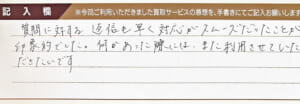 記入欄 ※今回ご利用いただきました買取サービスの感想を、手書きにてご記入お願いします
質問に対する返信も早く対応がスムーズだったことが
印象的でした。何かあった際には、また利用させていた
だきたいです